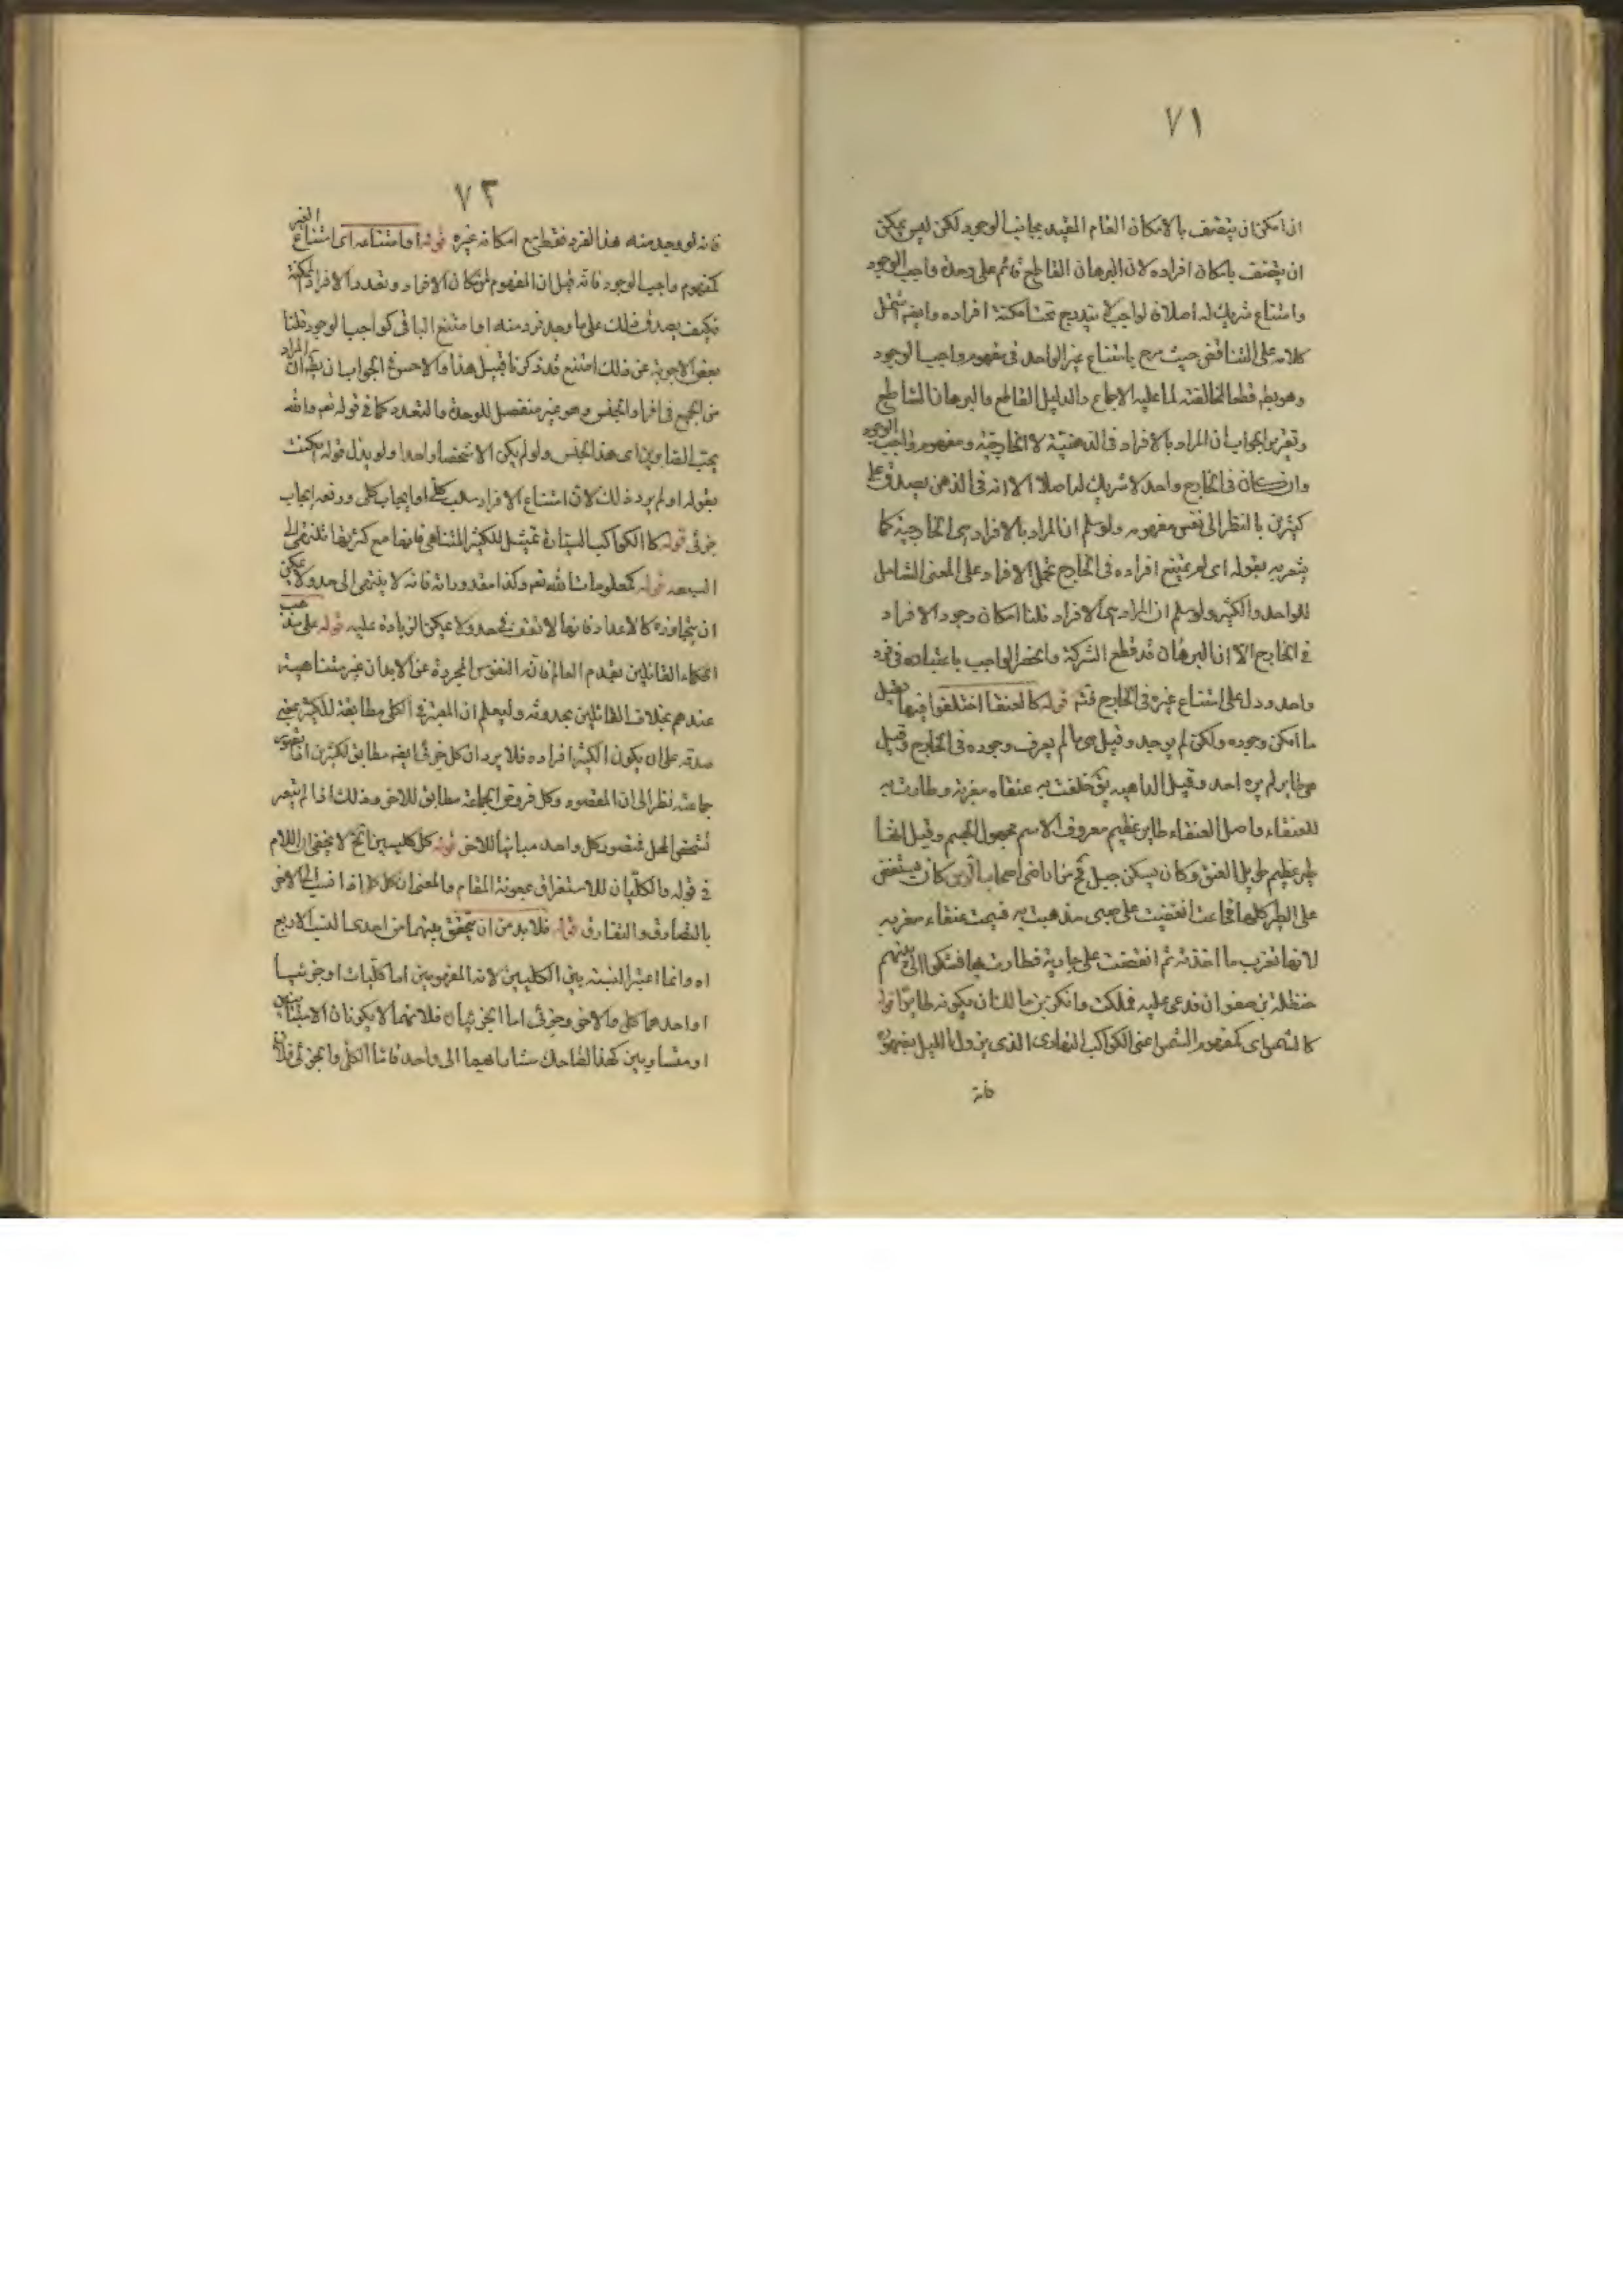 ٧١
اذا مكن ان يتصف بالامكان العام المقيد بجانب الوجود لكن ليس يمكن
ان يتصف بامكان افراده لان البرهان القاطع قائم على وحدة واجب الوجود
وامتناع شريك له اصلا فالواجب لا يندرج تحت امكنة افراده وايضا يشتمل
كلامه على التناقض حيث صرح بامتناع غير الواحد في مفهوم واجب الوجود
وهو بط قطعا لمخالفته لما عليه الاجماع والدليل القاطع والبرهان الساطع
وتقرير الجواب ان المراد بالافراد في الذهنية لا الخارجية ومفهوم واجب الوجود
وان كان في الخارج واحد لا شريك له اصلا الا انه في الذهن يصدق على
كثيرين بالنظر الى نفس مفهومه ولو سلم ان المراد بالافراد هي الخارجية كما
يشعر به بقوله اى لم يمتنع افراده في الخارج تحمل الافراد على المعنى الشامل
للواحد والكثير ولو سلم ان المراد هى الافراد قلنا امكان وجود الافراد
في الخارج الا ان البرهان قد قطع الشركة وانحصر الواجب باعتباره في فرد
واحد ودل على امتناع غيره في الخارج فتم قوله كالعنقا اختلفوا فيها فقيل
ما امكن وجوده ولكن لم يوجد وقيل هى ما لم يعرف وجوده في الخارج وقيل
هى طاير لم يره احد وقيل الداهية يق حلقت به عنقاء مغربة وطارت به
للعنقاء واصل العنقاء طاير عظيم معروف الاسم مجهول الجسم وقيل انها
طير عظيم طويل العنق وكان يسكن جبل فخ من اراضى اصحاب الرس كان ينقض
على الطير كلها فجاعت انقضت على صبى فذهبت به فسميت عنقاء مغرب
لانها تغرب ما اخذته ثم انقضت على جارية فطارت بها فشكوا الى نبيهم
حنظلة بن صفوان فدعى عليه فهلكت وانكر بن مالك ان يكون طايرا قوله
كالشمس اى كمفهوم الشمس اعنى الكواكب النهارى الذى يزول الليل بضوئه
فانه
٧٢
فانه لو وجد منه هذا الفرد فقط مع امكانه غيره قوله او امتناعه اى امتناع الغير
كمفهوم واجب الوجود فانه قيل ان المفهوم امكان الافراد وتعدد الافراد الممكنة
فكيف يصدق ذلك على ما وجد فرد منه او امتنع الباقى كواجب الوجود قلنا
بعض الاجوبة عن ذلك امتنع قد ذكرنا قبيل هذا والاحسن في الجواب ان يقال ان المراد
من الجمع في افراد الجنس وهو غير منفصل للوحدة والتعدد كما في قوله تعم والله
يحب الصابرين اى هذا الجنس ولو لم يكن الا شخصا واحدا ولو بدل قوله امكنت
بقوله او لم يرد ذلك لان امتناع الافراد سلب كلى او ايجاب كلى ورفعه ايجاب
جزئى قوله كالكواكب السيارة تمثيل للكثير المتناهى فانها مع كثرتها تنتهى الى
السبعة قوله كمعلومات الله تعم وكذا مقدوراته فانه لا ينتهى الى حد ولا يمكن
ان يتجاوزه كالاعداد فانها لا تقف في حد ولا يمكن الزيادة عليه قوله على مذهب
الحكماء القائلين بقدم العالم فان النفوس المجردة عن الابدان غير متناهية
عندهم بخلاف القائلين بحدوثه وليعلم ان المعتبر في الكلى مطابقة للكثير بمعنى
صدقه على ان يكون الكثير افراده فلا يرد ان كل جزئى ايضا مطابق لكثيرين اذا تصوره
جماعة نظرا الى ان المقصود وكل فرد من الجماعة مطابق للاخر وذلك اذا لم يعتبر
تشخص المحل فتصور كل واحد مباينا للاخر قوله كل كليين الخ لا يخفى ان اللام
في قوله والكليان للاستغراق بمعونة المقام والمعنى ان كل كلى اذا نسب الى الاخر
بالتصادق والتفارق قوله فلا بد من ان يتحقق بينهما من احدى النسب الاربع
اه وانما اعتبر النسبة بين الكليين لان المفهومين اما كليات او جزئيا
او احدهما كلى والاخر جزئى اما الجزئيان فلانهما لا يكونان الا متباينين
او متساويين كهذا الضاحك مشارا بهما الى واحد فانما الكلى والجزئى فلان